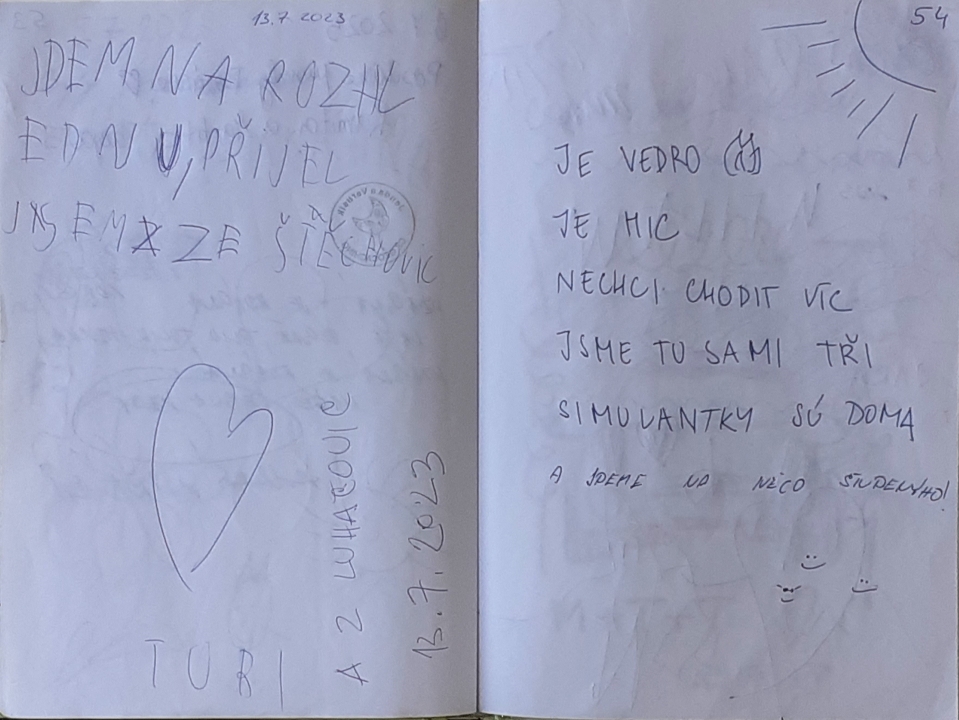 13.7 2023
JDEM NA ROZHL
EDNU, PŘIJEL
JSEM ZE ŠTĚCHOVIC
TURI
A Z LHATOVIC
13.7.2023
54
JE VEDRO
JE HIC
NECHCI CHODIT VÍC
JSME TU SAMI TŘI
SIMULANTKY SÚ DOMA
A JDEME NA NĚCO STUDENYHO!